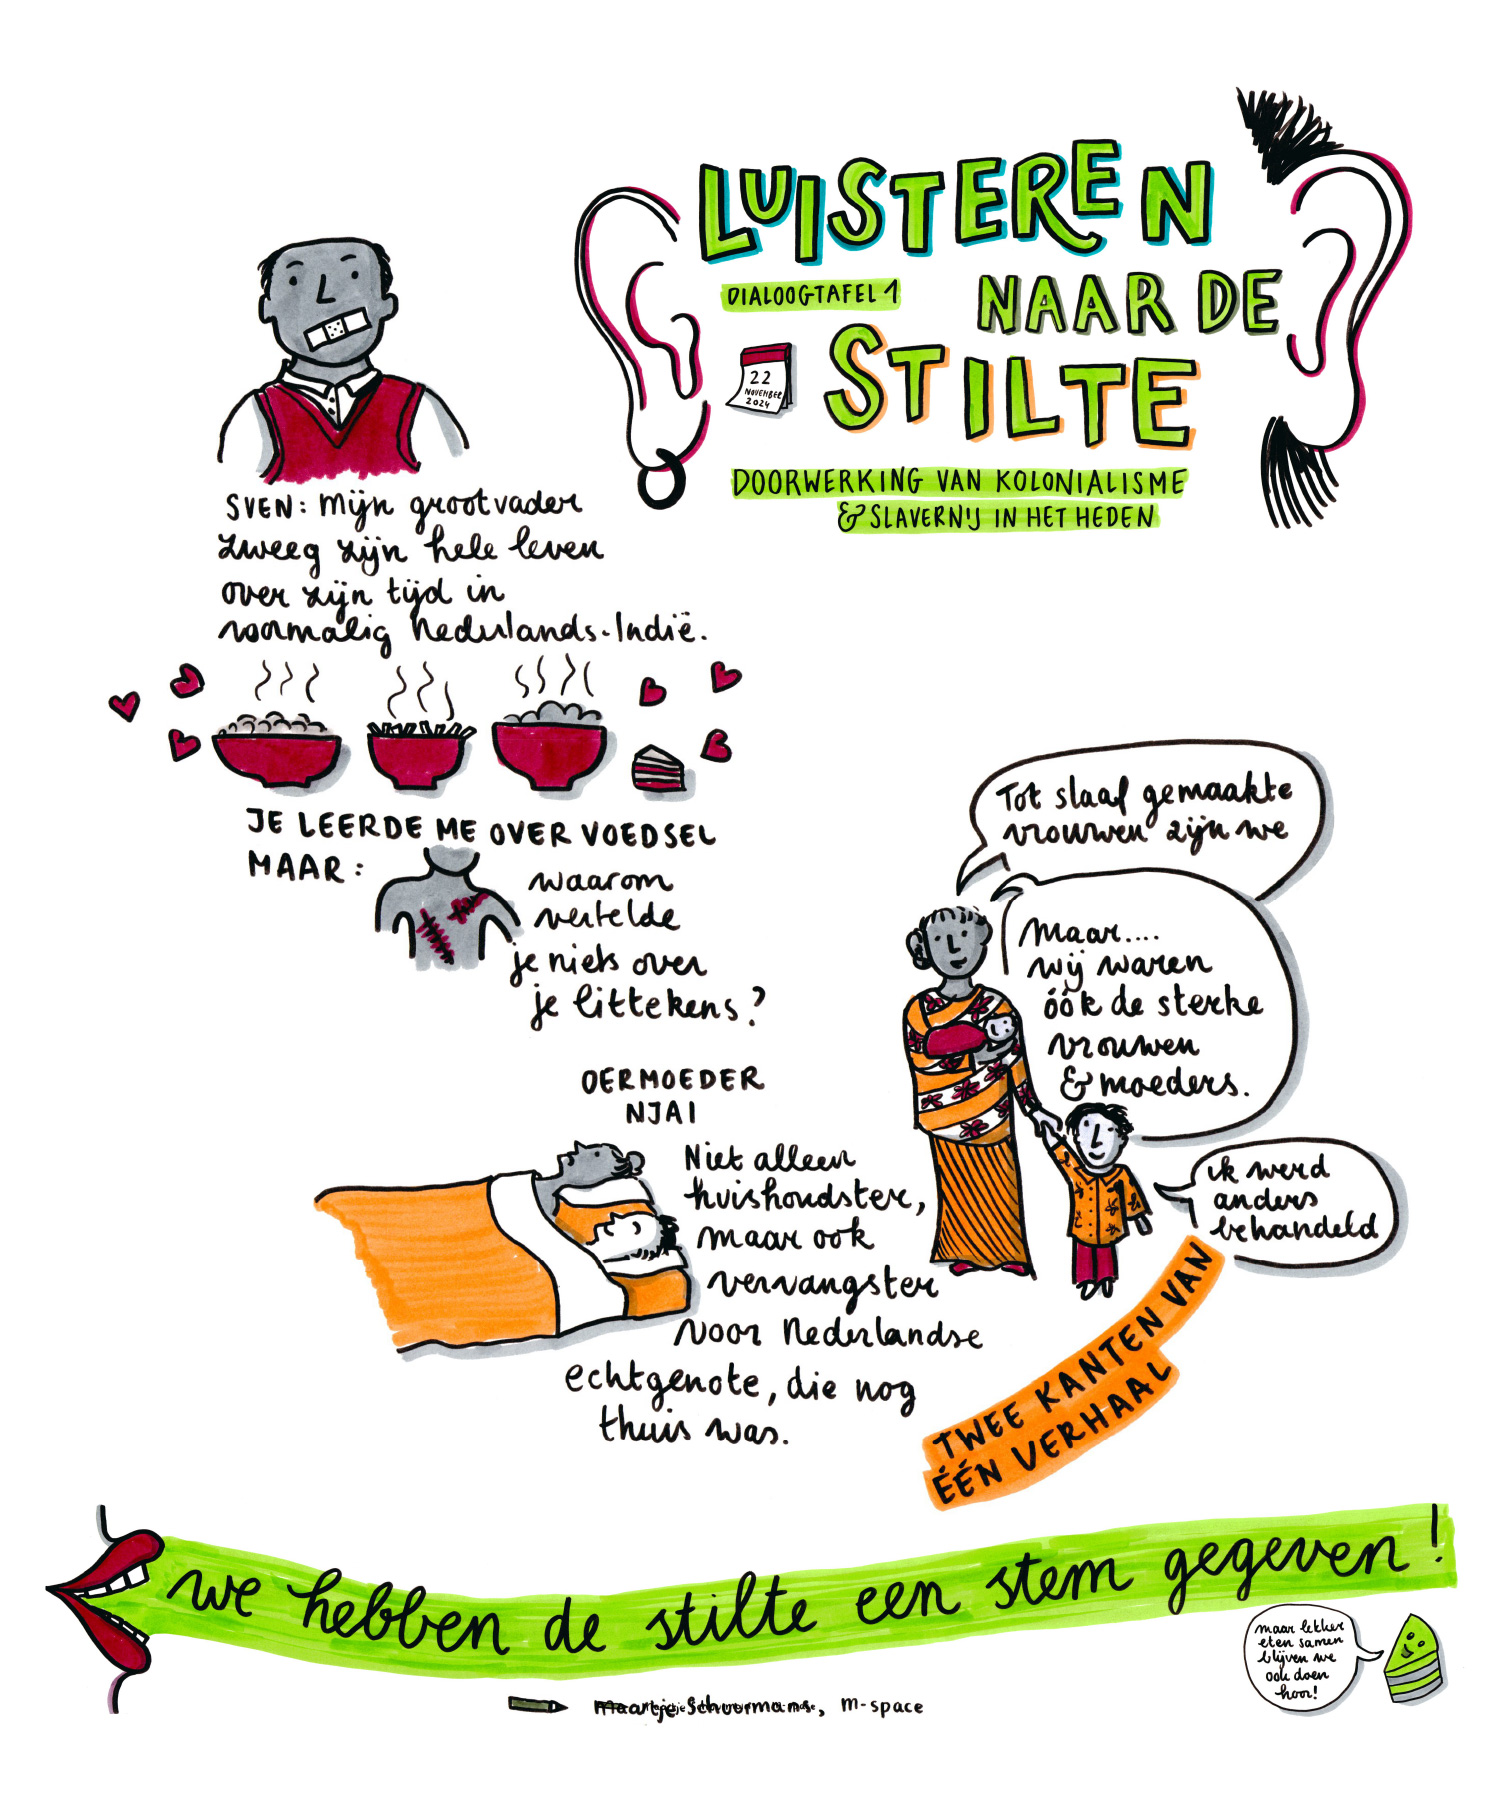 LUISTEREN
DIALOOGTAFEL 1
NAAR DE
STILTE
22
NOVEMBER
2024
DOORWERKING VAN KOLONIALISME
& SLAVERNIJ IN HET HEDEN
SVEN: Mijn grootvader
zweeg zijn hele leven
over zijn tijd in
voormalig Nederlands-Indië.
JE LEERDE ME OVER VOEDSEL
MAAR:
waarom
vertelde
je niets over
je littekens?
Tot slaaf gemaakte
vrouwen zijn we
Maar....
wij waren
óók de sterke
vrouwen
& moeders.
ik werd
anders
behandeld
OERMOEDER
NJAI
Niet alleen
huishoudster,
maar ook
vervangster
voor Nederlandse
echtgenote, die nog
thuis was.
TWEE KANTEN VAN
ÉÉN VERHAAL
we hebben de stilte een stem gegeven!
maar lekker
eten samen
blijven we
ook doen
hoor!
Maartje Schuurmans, M-space